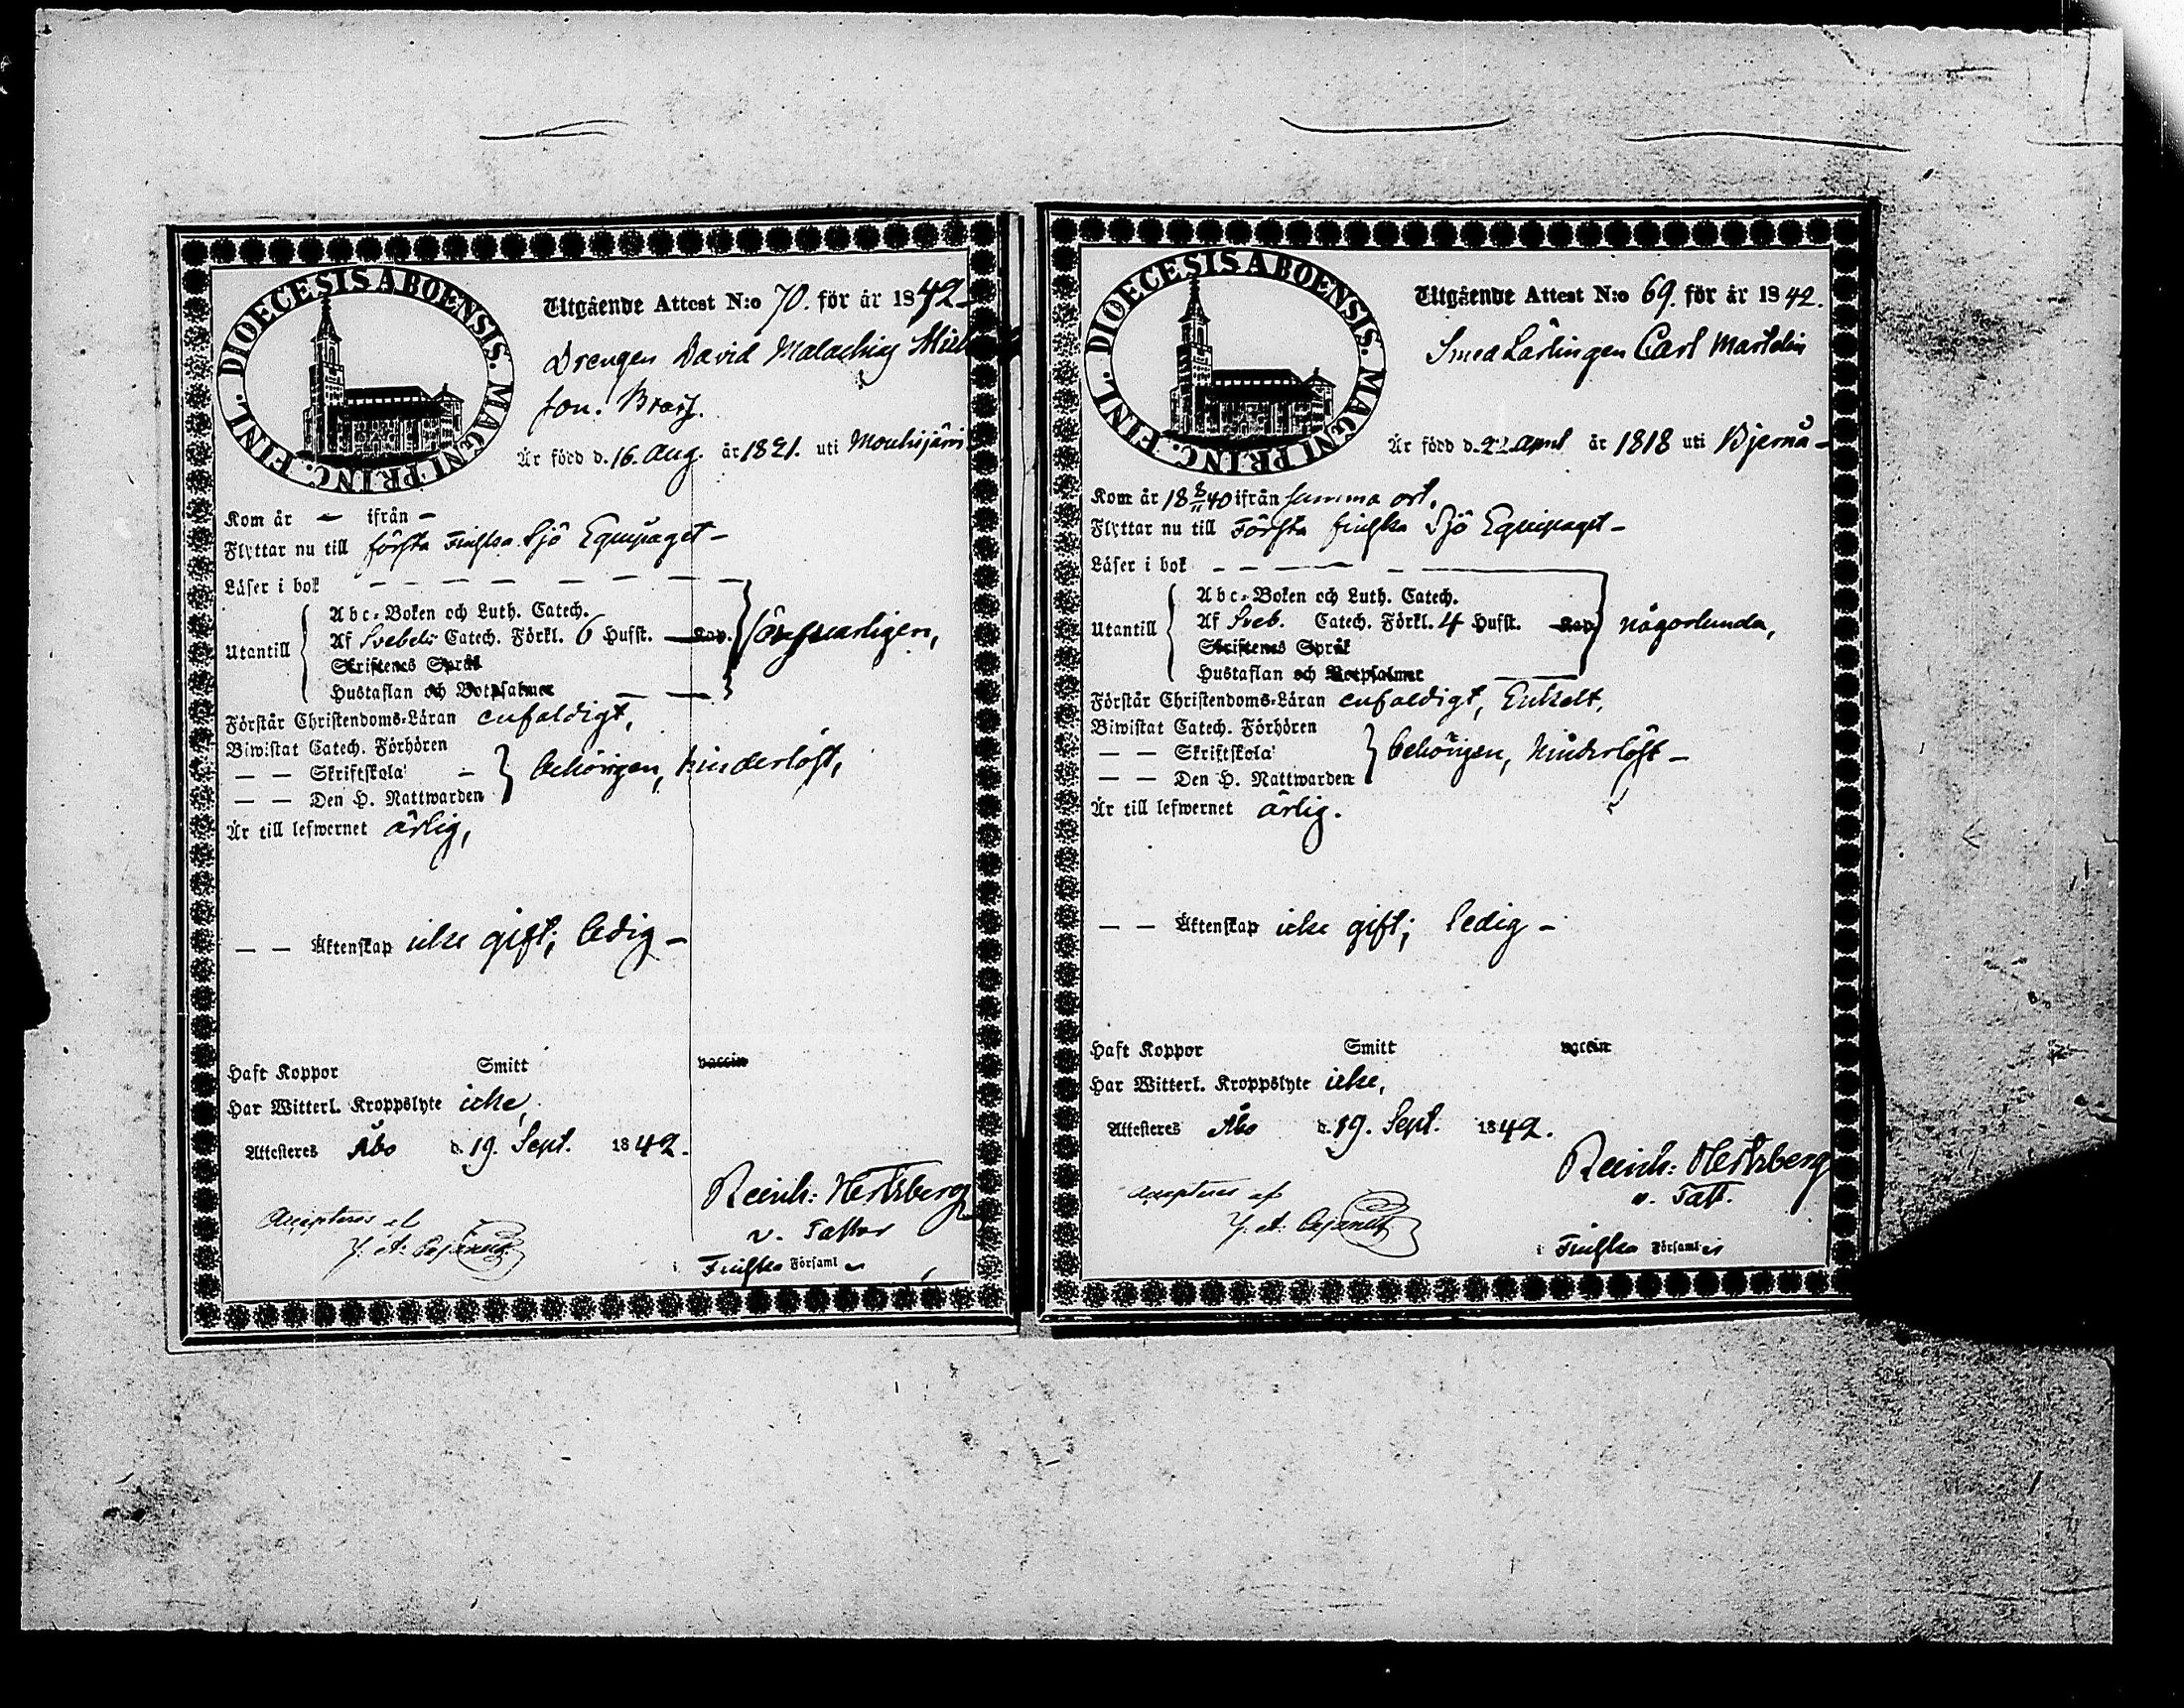 DIOECESIS ABOENSIS. MAGNI PRINC. FINL.
Utgående Attest N:o 70. för år 1842
Drengen David Malachias
son. Brask.
Är född d. 16. Aug. år 1821. uti Mouhijärvi
Kom år — ifrån —
Flyttar nu till första Finska Sjö Equipaget —
Läser i bok
Utantill
Abc-Boken och Luth. Catech.
Af Svebeli Catech. Förkl. 6 Hufst. Kap.
Skriftenes Språk
Hustaflan och Botpsalmer
försvarligen,
Förstår Christendoms-Läran enfaldigt,
Biwistat Catech. Förhören
— — Skriftskola
— — Den H. Nattwarden
behörigen, hinderlöst,
Är till lefwernet ärlig,
— — Äktenskap icke gift; ledig —
Haft Koppor Smitt vaccin
Har Witterl. Kroppslyte icke,
Attesteres Åbo d. 19. Sept. 1842.
Reinh: Hertzberg
v. Pastor
i Finska Församl
Accepteras af
J. A: Cajanus
DIOECESIS ABOENSIS. MAGNI PRINC. FINL.
Utgående Attest N:o 69. för år 1842.
Smed Lärlingen Carl Martelin
Är född d. 22 April år 1818 uti Bjernå —
Kom år 18 8/11 40 ifrån samma ort.
Flyttar nu till Första finska Sjö Equipaget —
Läser i bok
Utantill
Abc-Boken och Luth. Catech.
Af Sveb. Catech. Förkl. 4 Hufst. Kap
Skriftenes Språk
Hustaflan och Botpsalmer
någorlunda,
Förstår Christendoms-Läran enfaldigt, Enkelt,
Biwistat Catech. Förhören
— — Skriftskola
— — Den H. Nattwarden
behörigen, hinderlöst —
Är till lefwernet ärlig.
— — Äktenskap icke gift; ledig —
Haft Koppor Smitt vaccin
Har Witterl. Kroppslyte icke,
Attesteres Åbo d. 19. Sept. 1842.
Reinh: Hertzberg
v. Past.
i Finska Församl
Accepteras af
J. A: Cajanus